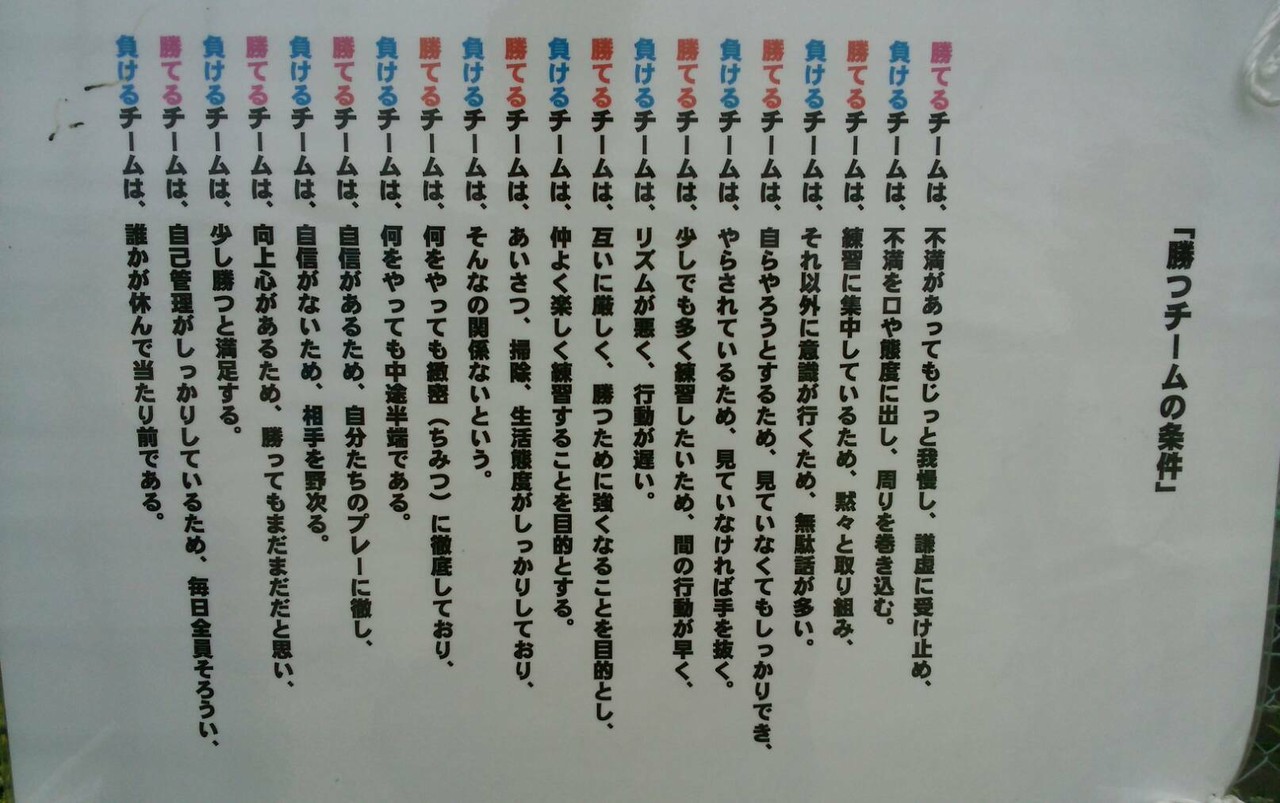 「勝つチームの条件」
勝てるチームは、不満があってもじっと我慢し、謙虚に受け止め、
負けるチームは、不満を口や態度に出し、周りを巻き込む。
勝てるチームは、練習に集中しているため、黙々と取り組み、
負けるチームは、それ以外に意識が行くため、無駄話が多い。
勝てるチームは、自らやろうとするため、見ていなくてもしっかりでき、
負けるチームは、やらされているため、見ていなければ手を抜く。
勝てるチームは、少しでも多く練習したいため、間の行動が早く、
負けるチームは、リズムが悪く、行動が遅い。
勝てるチームは、互いに厳しく、勝つために強くなることを目的とし、
負けるチームは、仲よく楽しく練習することを目的とする。
勝てるチームは、あいさつ、掃除、生活態度がしっかりしており、
負けるチームは、そんなの関係ないという。
勝てるチームは、何をやっても緻密（ちみつ）に徹底しており、
負けるチームは、何をやっても中途半端である。
勝てるチームは、自信があるため、自分たちのプレーに徹し、
負けるチームは、自信がないため、相手を野次る。
勝てるチームは、向上心があるため、勝ってもまだまだだと思い、
負けるチームは、少し勝つと満足する。
勝てるチームは、自己管理がしっかりしているため、毎日全員そろうい、
負けるチームは、誰かが休んで当たり前である。